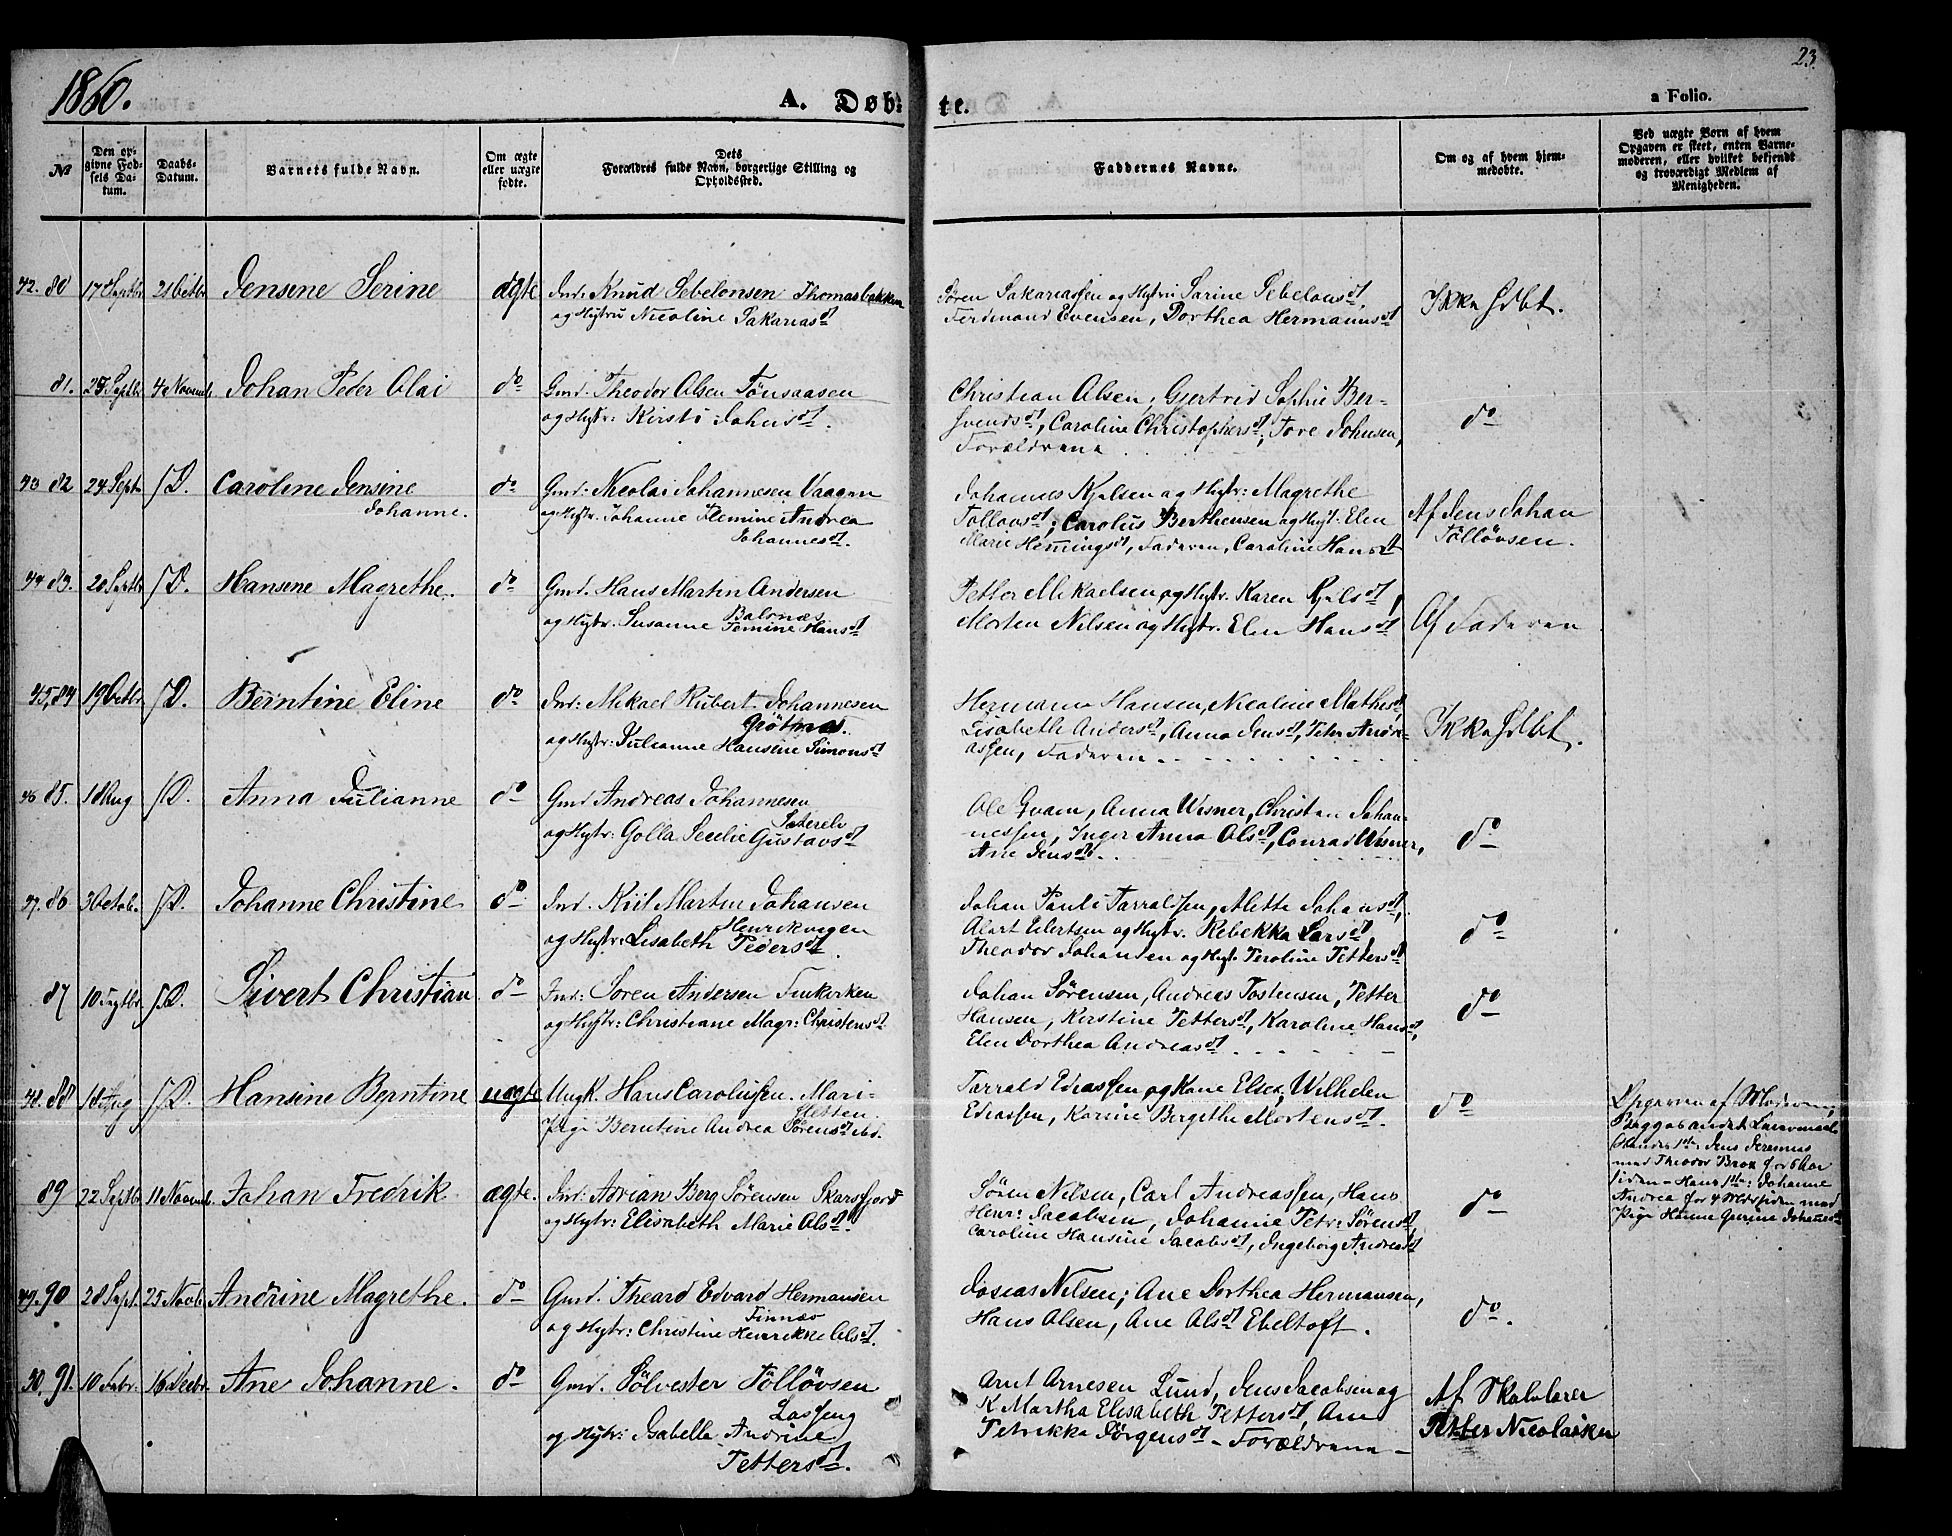 1860.
A. Døb-
te.
23
a Folio.
No
Den op-
givne Fød-
sels Da-
tum.
Daabs-
Datum.
Barnets fulde Navn.
Om ægte
eller uægte
fødte.
Dets
Forældres fulde Navn, borgerlige Stilling og
Opholdssted.
Faddernes Navne.
Om og af hvem hjem-
medøbte.
Ved uægte Børn af hvem
Opgaven er skeet, enten Barne-
moderen, eller hvilket bekjendt
og troværdigt Medlem af
Menigheden.
42. 80 17 Septbr 21 Octbr Jensine Serine ægte Ind: Knud Sebelonsen Thomasbakken
og Hustru Nicoline Sakariasd.
Søren Sakariassen og Hustru Sarine Sebelonsd.
Ferdinand Evensen, Dorthea Hermannsd.
Ikke Hdbt.
81. 25 Septbr 4 Novemb. Johan Peder Olai do Gmd. Theodor Olsen Tønsaasen
og Hustr: Kirsti Johnsd.
Christian Olsen, Gjertrid Sophie Ber-
hvendsd., Caroline Christophersd., Tore Johnsen,
Forældrene
do
43 82 24 Sept. S.D. Caroline Jensine
Johanne.
do Gmd: Nicolai Johannesen Vaagen
og Hustr. Johanne Flemine Andrea
Johannesd.
Johannes Kjelsen og Hustr: Magrethe
Tollovsd; Carolus Berthensen og Hust. Elen
Marie Hemmingsd, Faderen, Caroline Hansd
Af Jens Johan
Tølløvsen.
44 83. 20 Septbr S.D. Hansene Magrethe. do Gmd. Hans Martin Andersen
Balsnæs
og Hustr. Susanne Femine Hansd
Petter Mikaelsen og Hustr. Karen Kjelsd,
Morten Nilsen og Hustr. Elen Hansd
Af Faderen
45, 84 19 Octbr S.D. Berntine Eline do Ind: Mikael Rubert Johannesen
Grøtnæs.
og Hustr: Julianne Hansine Simonsd
Hermann Hansen, Nicoline Mathisd,
Lisabeth Andersd, Anna Jensd, Peter Andre-
assen, Faderen
Ikke Hdbt.
46 85. 18 Aug S.D. Anna Julianne do Gmd Andreas Johannesen
Seterelv
og Hustr: Golla Secelie Gustavsd
Ole Qvam, Anna Wisner, Christen Johan-
nessen, Inger Anna Olsd, Conrad Wisner,
Ane Jensd.
do
47. 86 3 Octob. S.D. Johanne Christine do Ind. Kiil Martin Johansen
Henrikvigen
og Hustr: Lisabeth Pedersd.
Johan Pauli Tarraldsen, Mette Johansd,
Alart Elertsen og Hustr. Rebekka Larsd
Theodor Johansen og Hust. Peroline Pettersd
do
87 10 Septbr. S.D. Sivert Christian do Ind: Soren Andersen Finkirken
og Hustr: Christiane Magr: Christensd
Johan Sørensen, Andreas Tostensen, Petter
Hansen, Kirstine Pettersd, Karoline Hansd,
Elen Dorthea Andreasd.
do
48. 88 18 Aug S.D. Hansine Berntine uægte Ungk. Hans Carolussen. Mari-
Sletten.
Pige Berntine Andrea Sørensd ibd.
Tarrald Ediassen og Kone Elsea, Wilhelm
Ediassen, Karine Bergithe Mortensd.
do
Opgaven af Moderen,
Begges andet Leiermaal
Hendes 1ste: Jens Jeremias
med Theodor Brox for 5 Aar
siden - Hans 1ste: Johanne
Andrea for 4 Mdr siden med
Pige Hanne Gurine Johansd
89 22 Septbr 11 Novemb. Johan Fredrik ægte. Ind: Adrian Berg Sørensen Skarsfjord
og Hustr: Elisabeth Marie Olsd.
Søren Nilsen, Carl Andreassen, Hans
Henr: Jacobsen, Johanne Petr: Sørensd,
Caroline Hansine Jacobsd, Ingeborg Andreasd
do
49. 90 28 Sept. 25 Novb. Andrine Magrethe. do Gmd. Theard Edvard Hermansen
Finnæs
og Hustr: Christine Henrikke Olsd.
Josias Nilsen; Ane Dorthea Hermansen,
Hans Olsen, Ane Olsd Ebeltoft.
do.
50. 91. 10 Febr. 16 Decbr. Ane Johanne. do Gmd. Sølvester Tølløvsen
Lasseng
og Hustr: Isabella Andrine
Pettersd.
Arnt Arnesen Lund, Jens Jacobsen og
K Martha Elisabeth Pettersd, Ane
Petrikka Jørgensd - Forældrene -
Af Skolelærer
Petter Nicolaisen